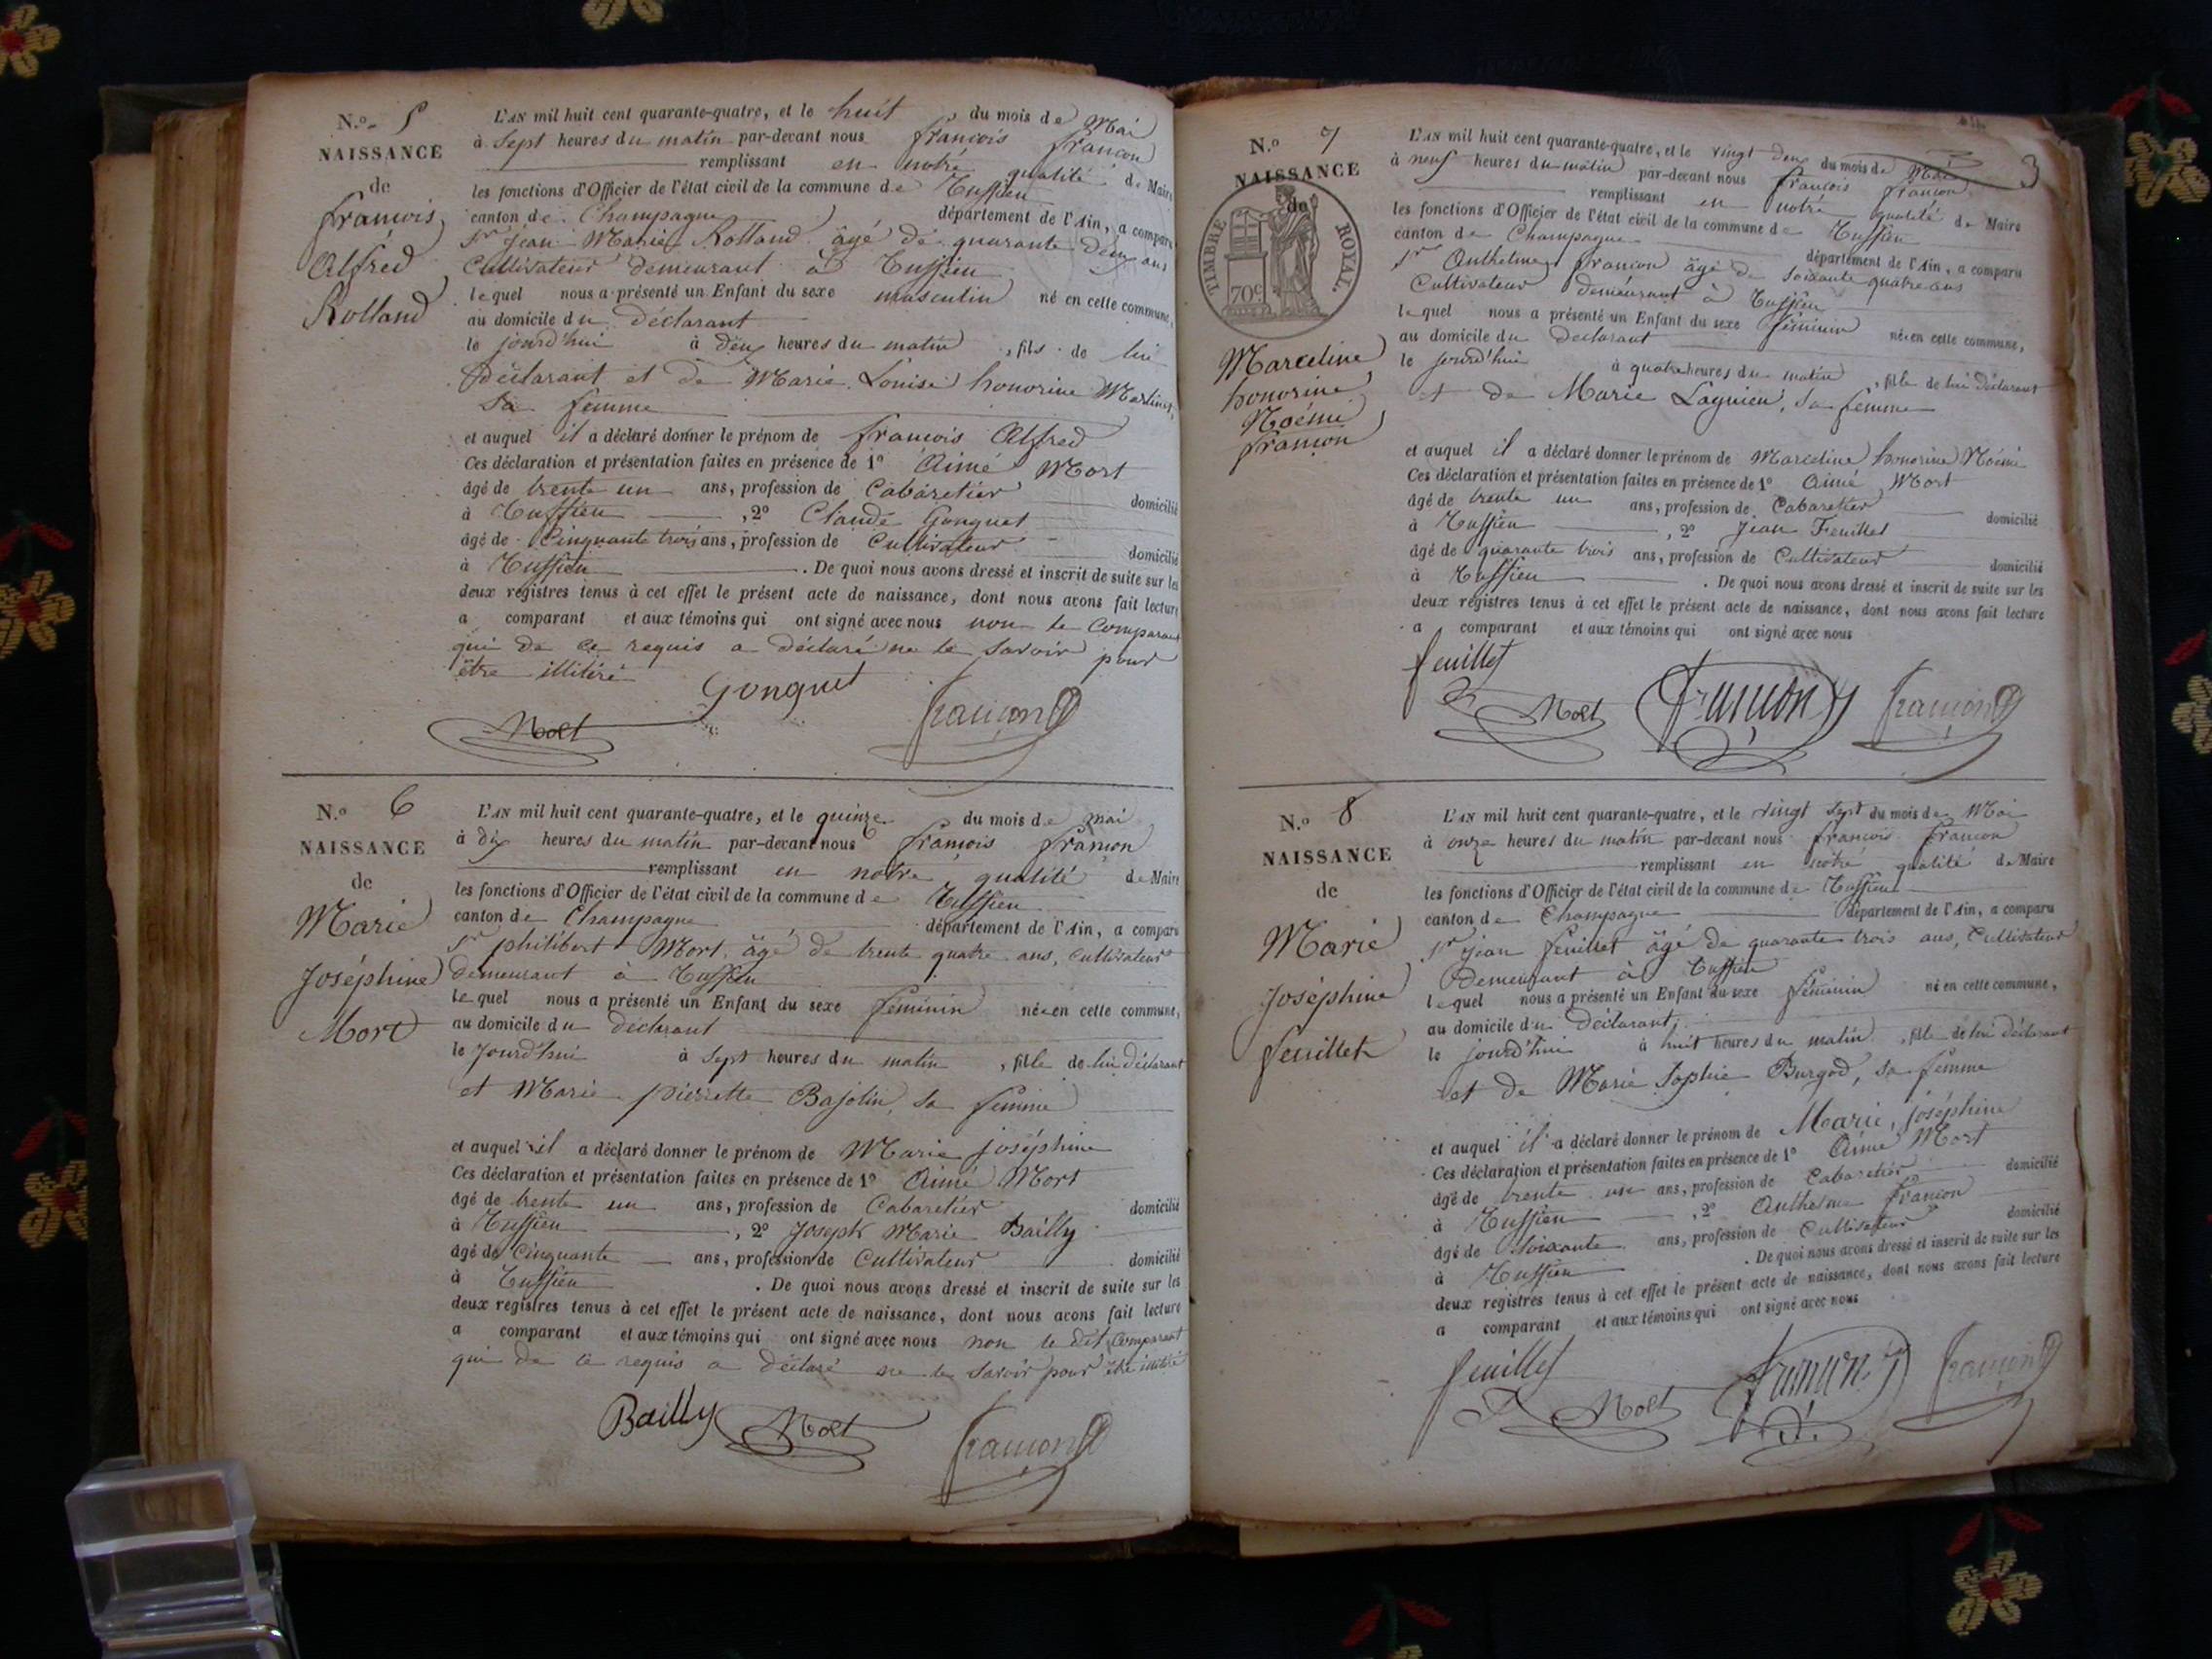 N.o 5
NAISSANCE
de
francois
Alfred
Rolland
L'AN mil huit cent quarante-quatre, et le huit du mois de Mai
à Sept heures du matin par-devant nous francois francon
remplissant en notre qualité de Maire
les fonctions d'Officier de l'état civil de la commune de Tuffieu
canton de Champagne département de l'Ain, a comparu
Sr Jean Marie Rolland âgé de quarante deux ans
Cultivateur demeurant à Tuffieu
lequel nous a présenté un Enfant du sexe masculin né en cette commune,
au domicile du déclarant
le jourd'hui à deux heures du matin, fils de lui
déclarant et de Marie Louise honorine Martinet,
sa femme
et auquel il a déclaré donner le prénom de francois Alfred
Ces déclaration et présentation faites en présence de 1o Aimé Mort
âgé de trente un ans, profession de Cabaretier domicilié
à Tuffieu, 2o Claude Gonguet
âgé de Cinquante trois ans, profession de Cultivateur domicilié
à Tuffieu. De quoi nous avons dressé et inscrit de suite sur les
deux registres tenus à cet effet le présent acte de naissance, dont nous avons fait lecture
a comparant et aux témoins qui ont signé avec nous non le Comparant
qui de ce requis a déclaré ne le savoir pour
être illitéré
Gonguet
Mort francon
N.o 6
NAISSANCE
de
Marie
Joséphine
Mort
L'AN mil huit cent quarante-quatre, et le quinze du mois de mai
à dix heures du matin par-devant nous francois francon
remplissant en notre qualité de Maire
les fonctions d'Officier de l'état civil de la commune de Tuffieu
canton de Champagne département de l'Ain, a comparu
Sr philibert Mort âgé de trente quatre ans, cultivateur
demeurant à Tuffieu
lequel nous a présenté un Enfant du sexe féminin née en cette commune,
au domicile du déclarant
le Jourd'hui à Sept heures du matin, fille de lui déclarant
et Marie pierrette Bajolin, sa femme
et auquel il a déclaré donner le prénom de Marie joséphine
Ces déclaration et présentation faites en présence de 1o Aimé Mort
âgé de trente un ans, profession de Cabaretier domicilié
à Tuffieu, 2o Joseph Marie Bailly
âgé de Cinquante ans, profession de Cultivateur domicilié
à Tuffieu. De quoi nous avons dressé et inscrit de suite sur les
deux registres tenus à cet effet le présent acte de naissance, dont nous avons fait lecture
a comparant et aux témoins qui ont signé avec nous non le dit Comparant
qui de ce requis a déclaré ne le savoir pour être illitéré
Bailly Mort francon
3
N.o 7
NAISSANCE
de
TIMBRE ROYAL.
70c
Marceline
honorine
Noémie
francon
L'AN mil huit cent quarante-quatre, et le vingt deux du mois de Mai
à neuf heures du matin par-devant nous francois francon
remplissant en notre qualité de Maire
les fonctions d'Officier de l'état civil de la commune de Tuffieu
canton de Champagne département de l'Ain, a comparu
Sr Anthelme francon âgé de soixante quatre ans
Cultivateur demeurant à Tuffieu
lequel nous a présenté un Enfant du sexe féminin née en cette commune,
au domicile du déclarant
le jourd'hui à quatre heures du matin, fille de lui déclarant
et de Marie Lagnieu, sa femme
et auquel il a déclaré donner le prénom de Marceline honorine Noémie
Ces déclaration et présentation faites en présence de 1o Aimé Mort
âgé de trente un ans, profession de Cabaretier domicilié
à Tuffieu, 2o Jean Feuillet
âgé de quarante trois ans, profession de Cultivateur domicilié
à Tuffieu. De quoi nous avons dressé et inscrit de suite sur les
deux registres tenus à cet effet le présent acte de naissance, dont nous avons fait lecture
a comparant et aux témoins qui ont signé avec nous
feuillet
Mort francon francon
N.o 8
NAISSANCE
de
Marie
Joséphine
feuillet
L'AN mil huit cent quarante-quatre, et le vingt sept du mois de Mai
à onze heures du matin par-devant nous francois francon
remplissant en notre qualité de Maire
les fonctions d'Officier de l'état civil de la commune de Tuffieu
canton de Champagne département de l'Ain, a comparu
Sr jean feuillet âgé de quarante trois ans, Cultivateur
demeurant à Tuffieu
lequel nous a présenté un Enfant du sexe féminin né en cette commune,
au domicile du déclarant,
le jourd'hui à huit heures du matin, fille de lui déclarant
et de Marie Sophie Burgod, sa femme
et auquel il a déclaré donner le prénom de Marie, joséphine
Ces déclaration et présentation faites en présence de 1o Aimé Mort
âgé de trente un ans, profession de Cabaretier domicilié
à Tuffieu, 2o Anthelme francon
âgé de Soixante ans, profession de Cultivateur domicilié
à Tuffieu. De quoi nous avons dressé et inscrit de suite sur les
deux registres tenus à cet effet le présent acte de naissance, dont nous avons fait lecture
a comparant et aux témoins qui ont signé avec nous
feuillet
Mort francon francon